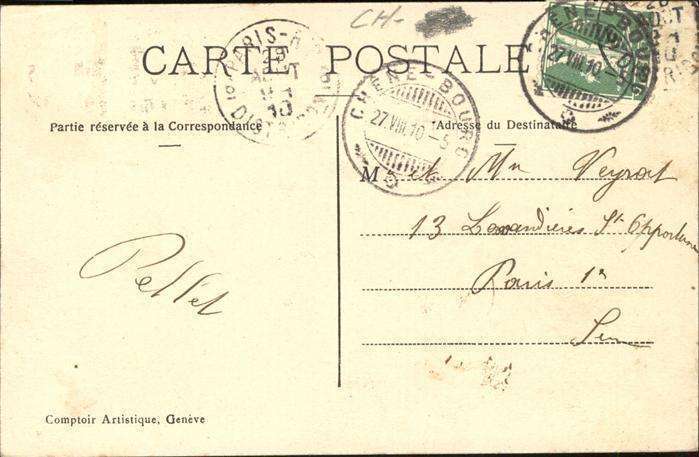 CH-
CARTE POSTALE
PARIS-
DISTRIBUTION
CHÊNE-BOURG
27.VIII.10-5
CHÊNE-BOURG
27.VIII.10
Partie réservée à la Correspondance
Adresse du Destinataire
M et Mn Veyrat
13 Lavandières St Opportune
Paris 1r
Sen
Pellet
Comptoir Artistique, Genève